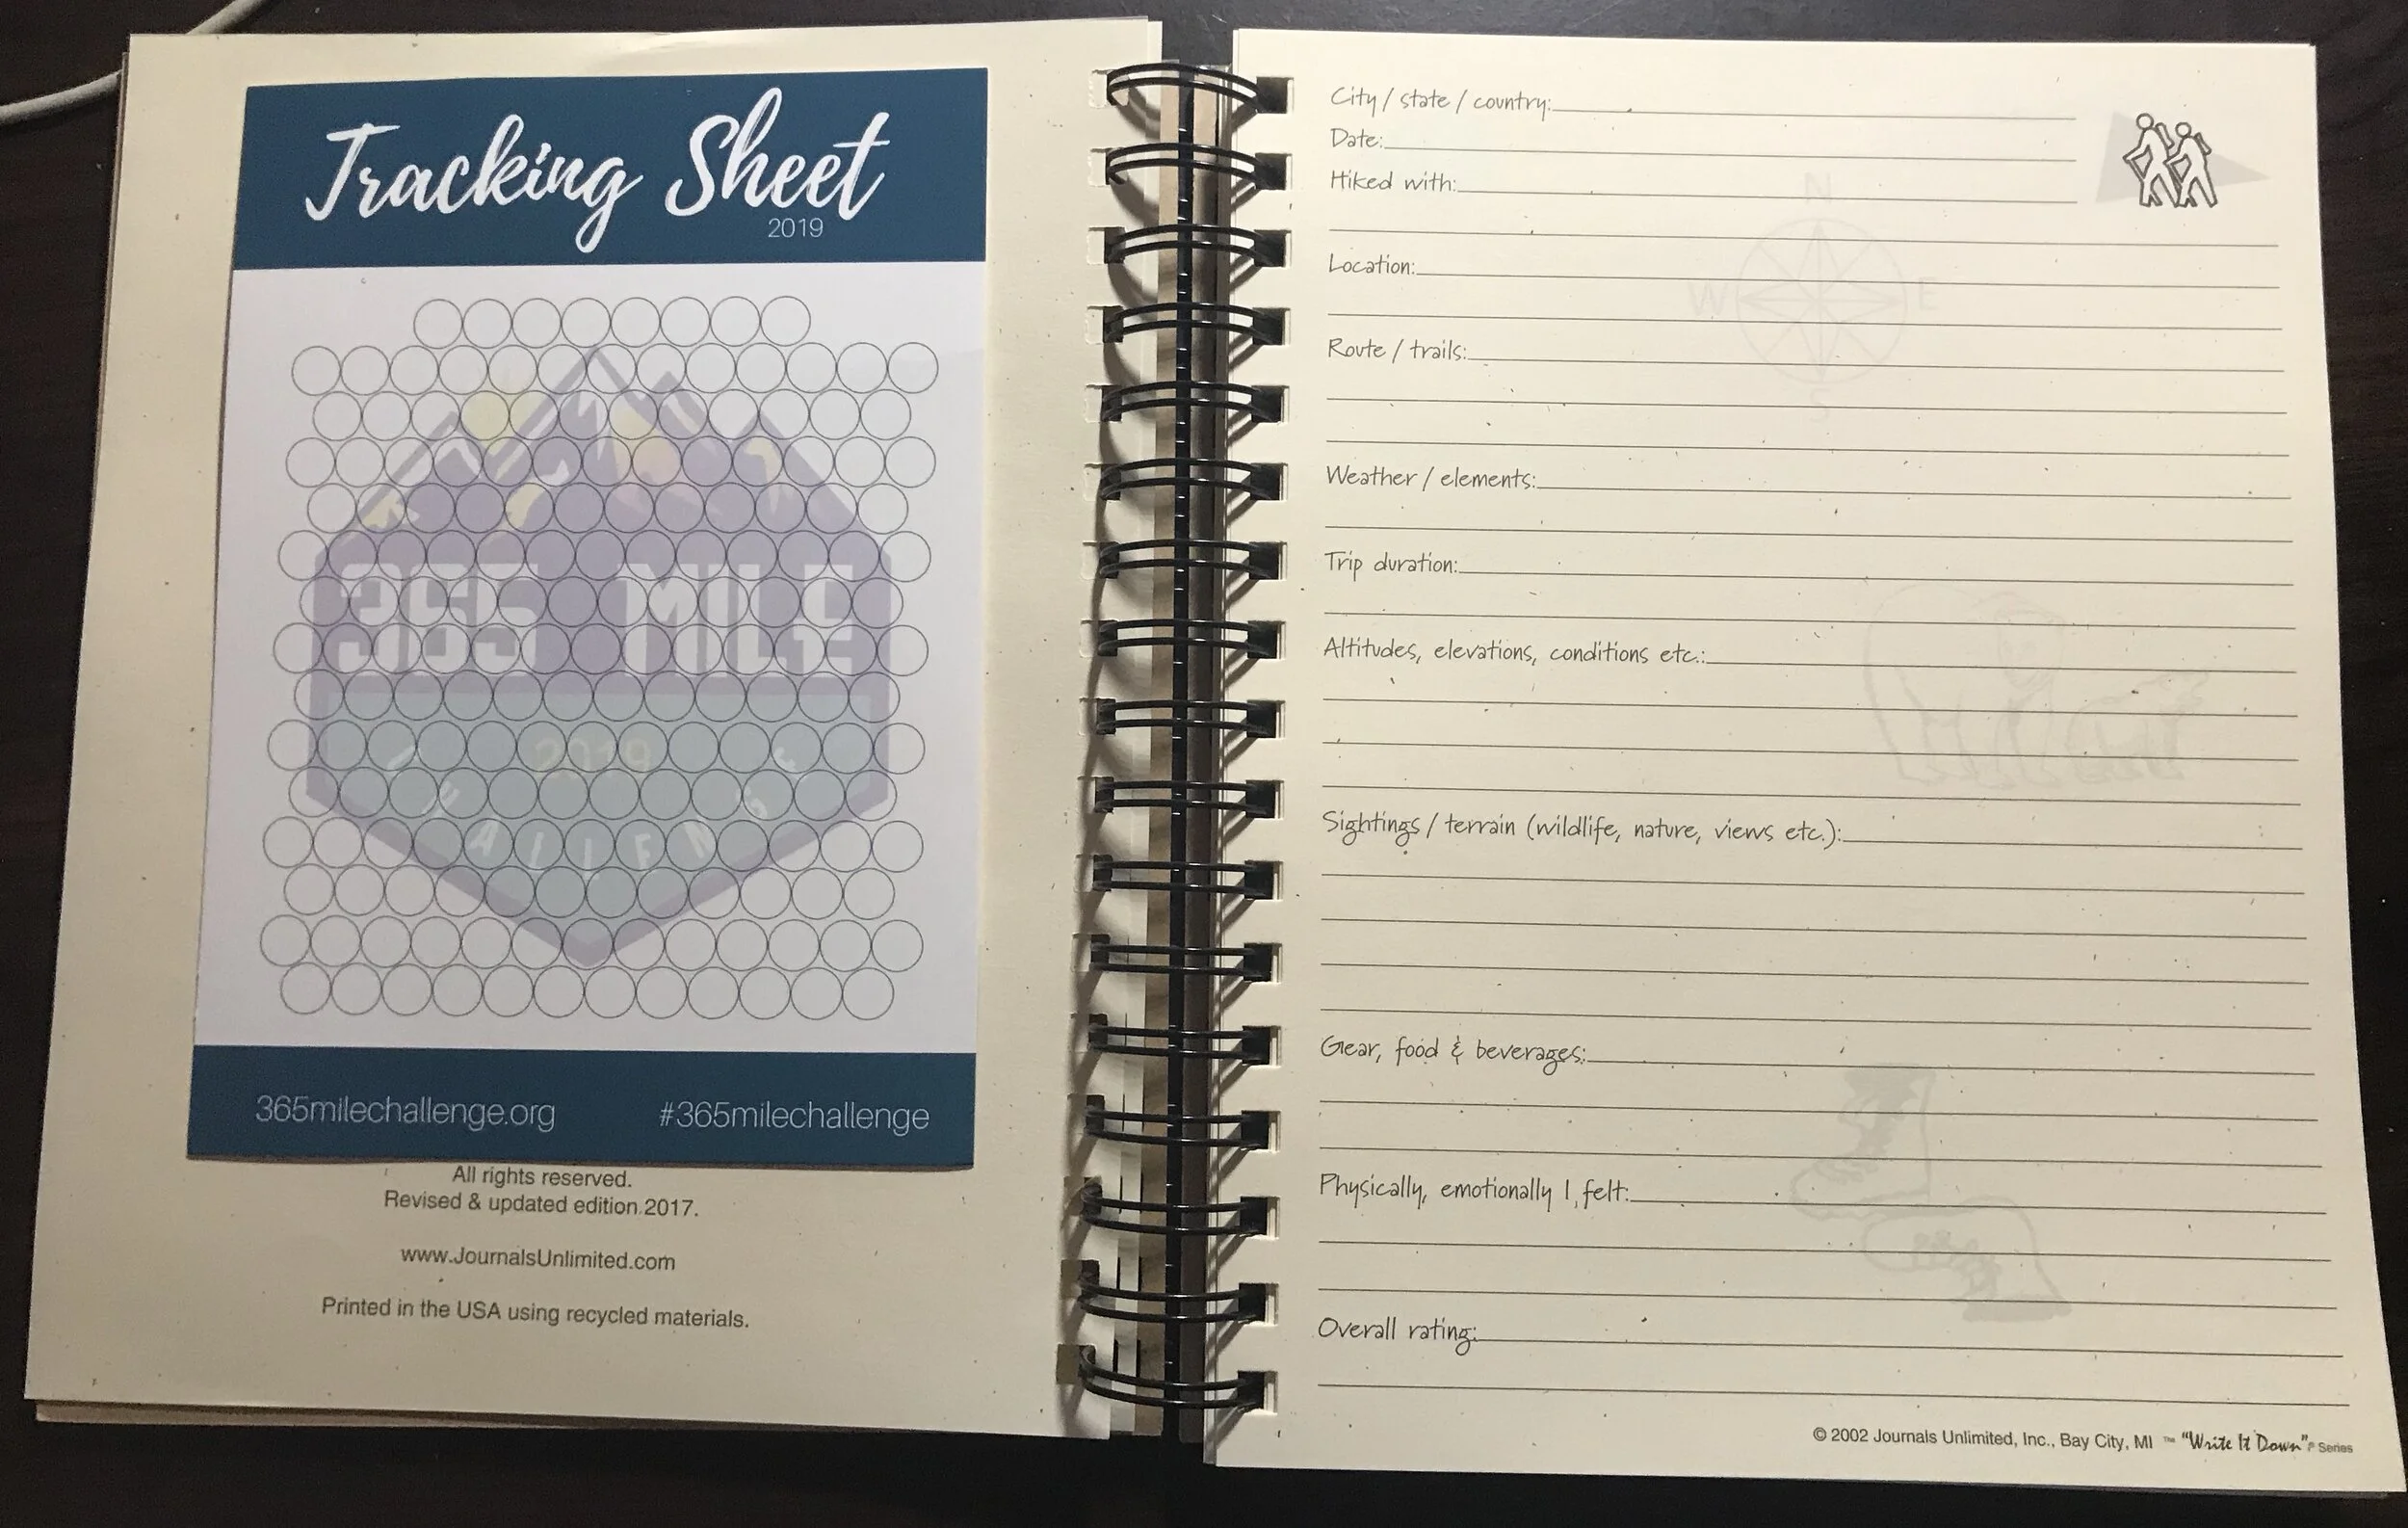 Tracking Sheet
2019
365 MILE
2019
CHALLENGE
365milechallenge.org #365milechallenge
All rights reserved.
Revised & updated edition 2017.
www.JournalsUnlimited.com
Printed in the USA using recycled materials.
City / state / country:
Date:
Hiked with:
N
W E
S
Location:
Route / trails:
Weather / elements:
Trip duration:
Altitudes, elevations, conditions etc.:
Sightings / terrain (wildlife, nature, views etc.):
Gear, food & beverages:
Physically, emotionally I felt:
Overall rating:
© 2002 Journals Unlimited, Inc., Bay City, MI ™ "Write It Down"® Series